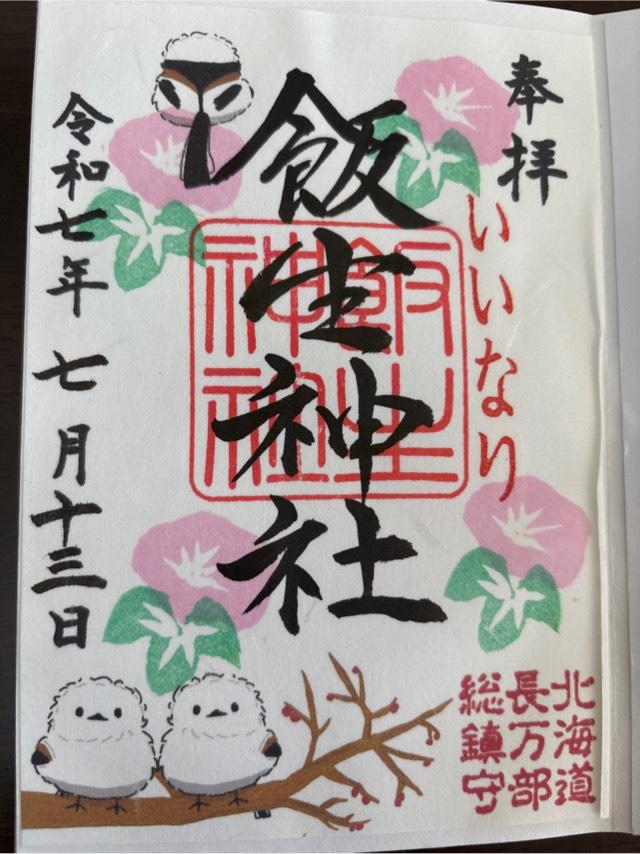 奉拝
いいなり
飯生神社
飯生神社
令和七年七月十三日
北海道
長万部
総鎮守